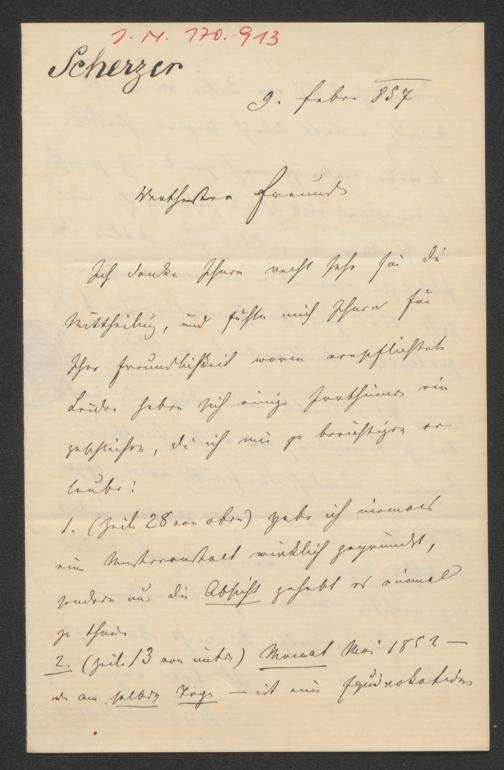 J. N. 170.913
Scherzer
9. Febr. 857
Werthester Freund
Ich danke Ihnen recht sehr für die
Mittheilung, und fühle mich Ihnen für
Ihre Freundlichkeit warm verpflichtet.
Leider haben sich einige Irrthümer ein
geschlichen, die ich mir zu berichtigen er
laube:
1. (Zeile 28 von oben) habe ich niemals
eine Musteranstalt wirklich gegründet,
sondern nur die Absicht gehabt es einmal
zu thun
2. (Zeile 13 von unten) Monat Mai 1852 —
am selben Tage — ist eine Equivokation